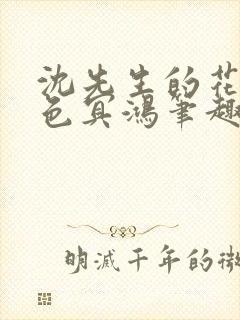 沈先生的花
色冥鸿笔趣
明滅千年的微